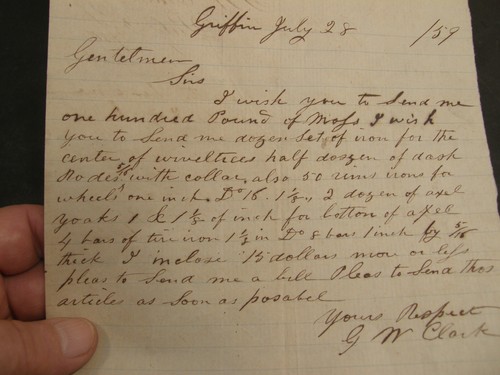 Griffin July 28 /59
Gentelmen
Sirs
I wish you to send me
one hundred Pound of Moss I wish
you to send me dozen set of iron for the
center of wiveltices half dozgen of dash
Rodes with collar, also 50 rims irons for
wheels one inch Do 16. 1 1/8, 2 dozen of axel
yoaks 1 & 1 1/2 of inch for bottom of axel
4 bars of tire iron 1 1/2 in Do 8 bars 1 inch by 5/16
thick I inclose 15 dollars more or less
pleas to send me a bill Pleas to send thos
articles as soon as posabel
Yours Respect
G W Clark